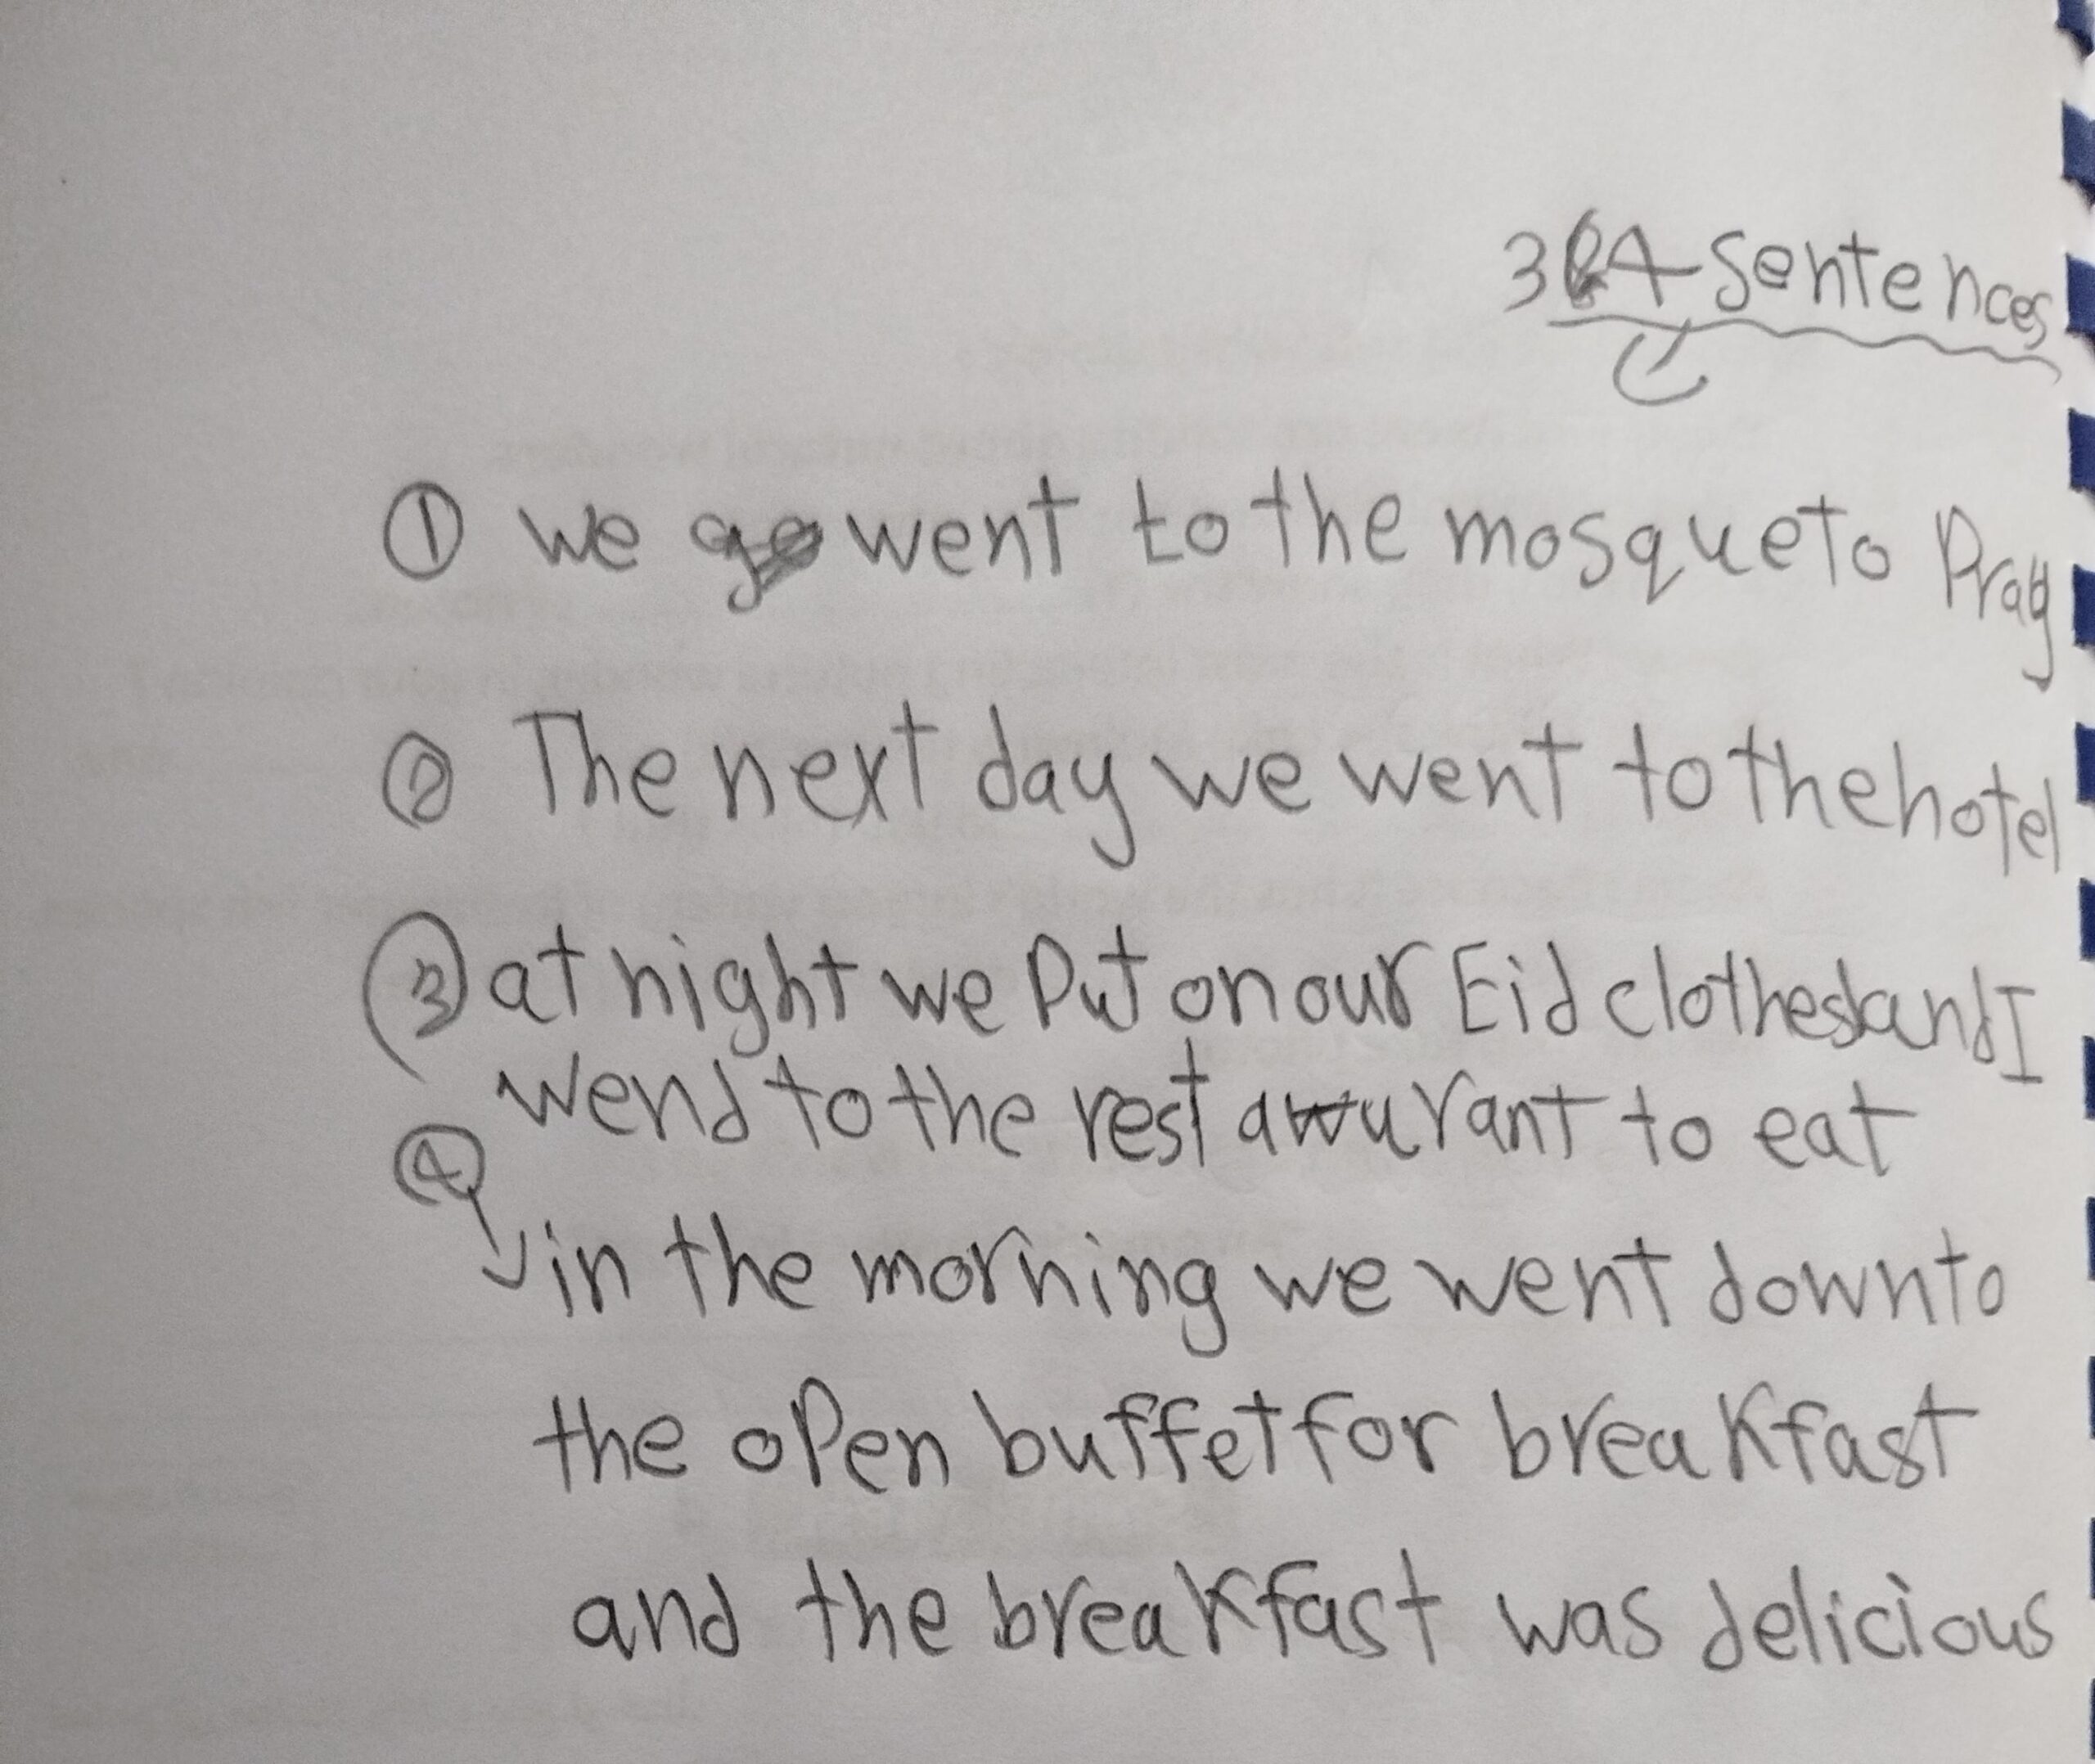 3 4 sentences
① we go went to the mosque to Pray
② The next day we went to the hotel
③ at night we Put on our Eid clothes and I
wend to the restaurant to eat
④
in the morning we went down to
the oPen buffet for breakfast
and the breakfast was delicious